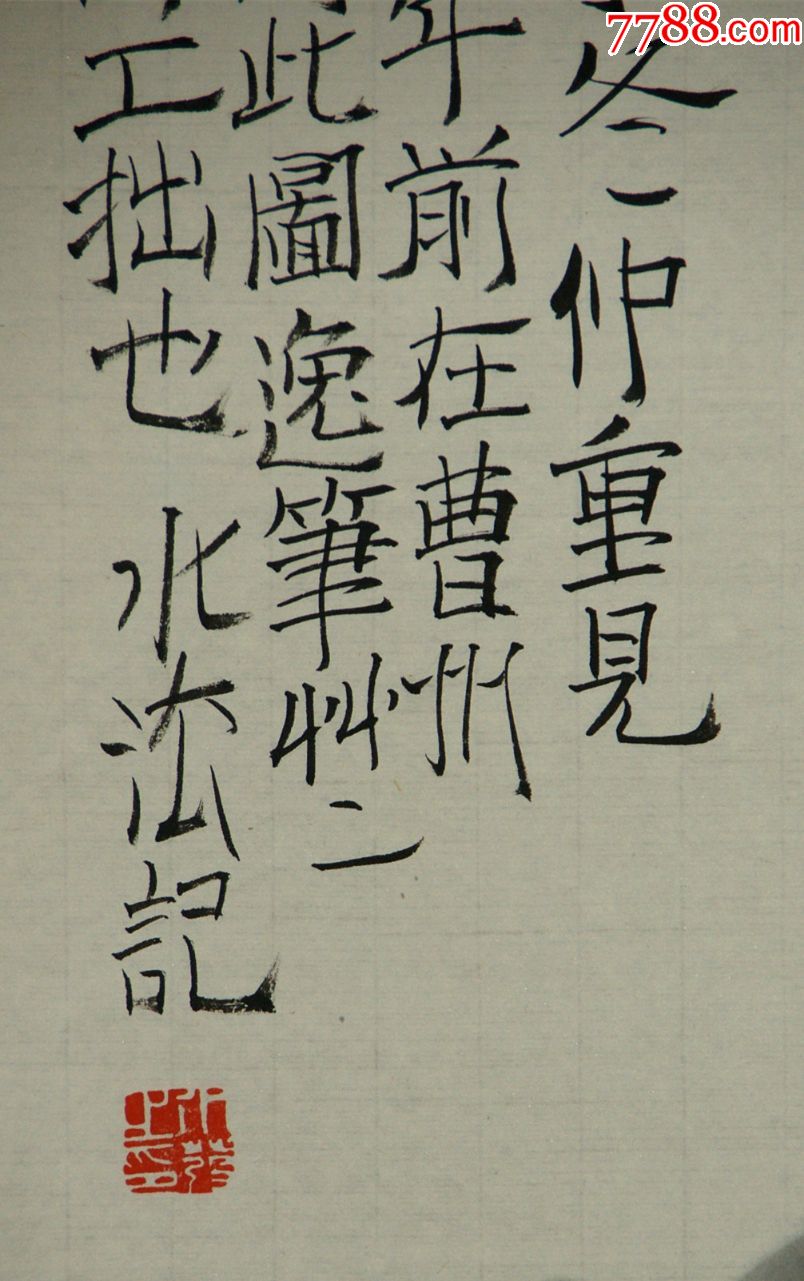 7788.com
冬仲重見
年前在曹州
此圖逸筆艸二
工拙也 水沄記